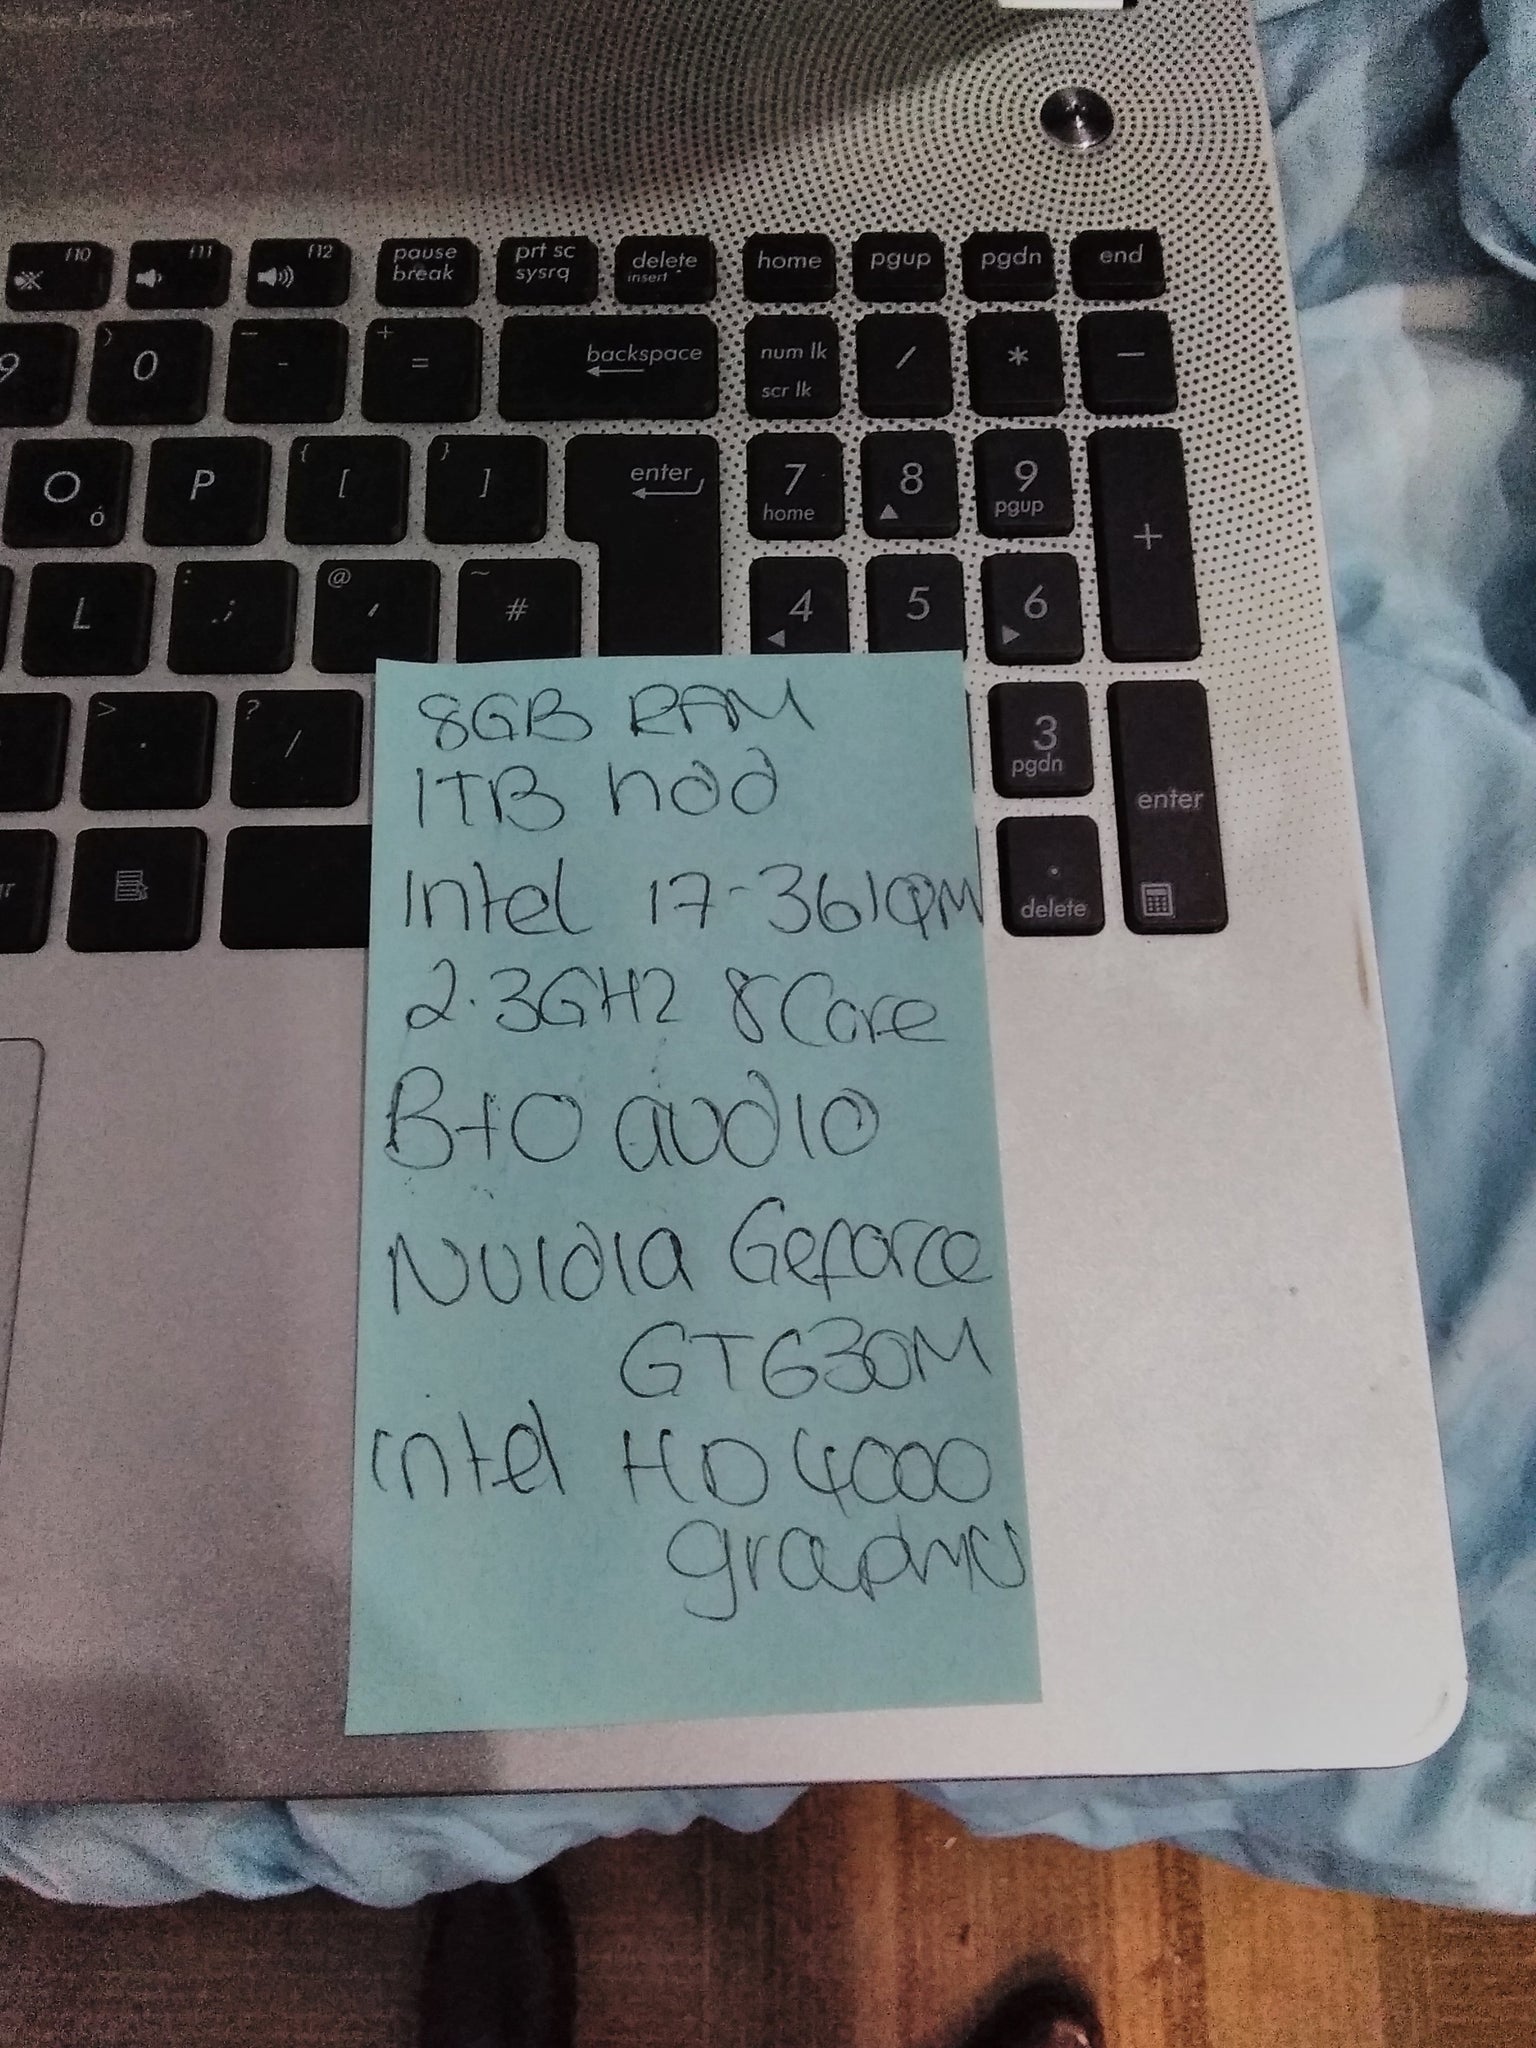 f10 f11 f12 pause break prt sc sysrq delete insert home pgup pgdn end
9 ) 0 _ - + = backspace num lk scr lk / * -
O ó P { [ } ] enter 7 home 8 9 pgup +
L : ; @ ' ~ # 4 5 6
> . ? / 3 pgdn enter
. delete
8GB RAM
1TB hdd
Intel i7-361QM
2.3GHz 8Core
B+O audio
Nvidia Geforce
GT630M
intel HD4000
graphics